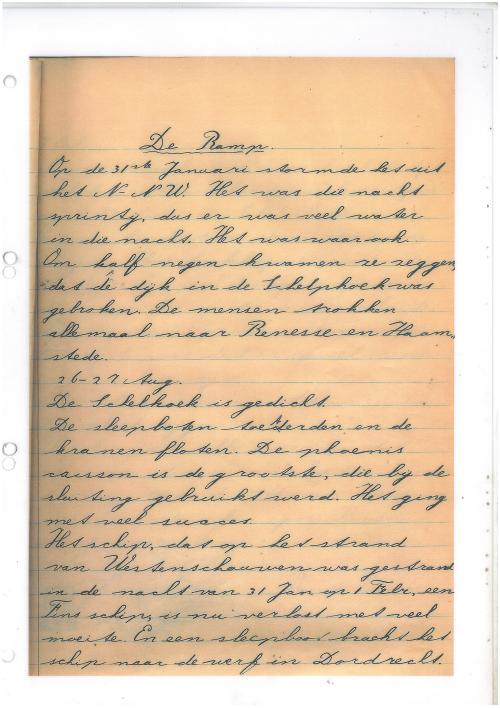 De Ramp.
Op de 31ste Januari stormde het uit
het N-N W. Het was die nacht
springtij, dus er was veel water
in die nacht. Het was waar ook.
Om half negen kwamen ze zeggen,
dat de dijk in de Schelphoek was
gebroken. De mensen trokken
allemaal naar Renesse en Haam-
stede.
26-27 Aug.
De Schelhoek is gedicht.
De sleepboten toeterden en de
kranen floten. De phoenis
caisson is de grootste, die bij de
sluiting gebruikt werd. Het ging
met veel succes.
Het schip, dat op het strand
van Westenschouwen was gestrand
in de nacht van 31 Jan op 1 Febr, een
Fins schip, is nu verlost met veel
moeite. En een sleepboot bracht het
schip naar de werf in Dordrecht.